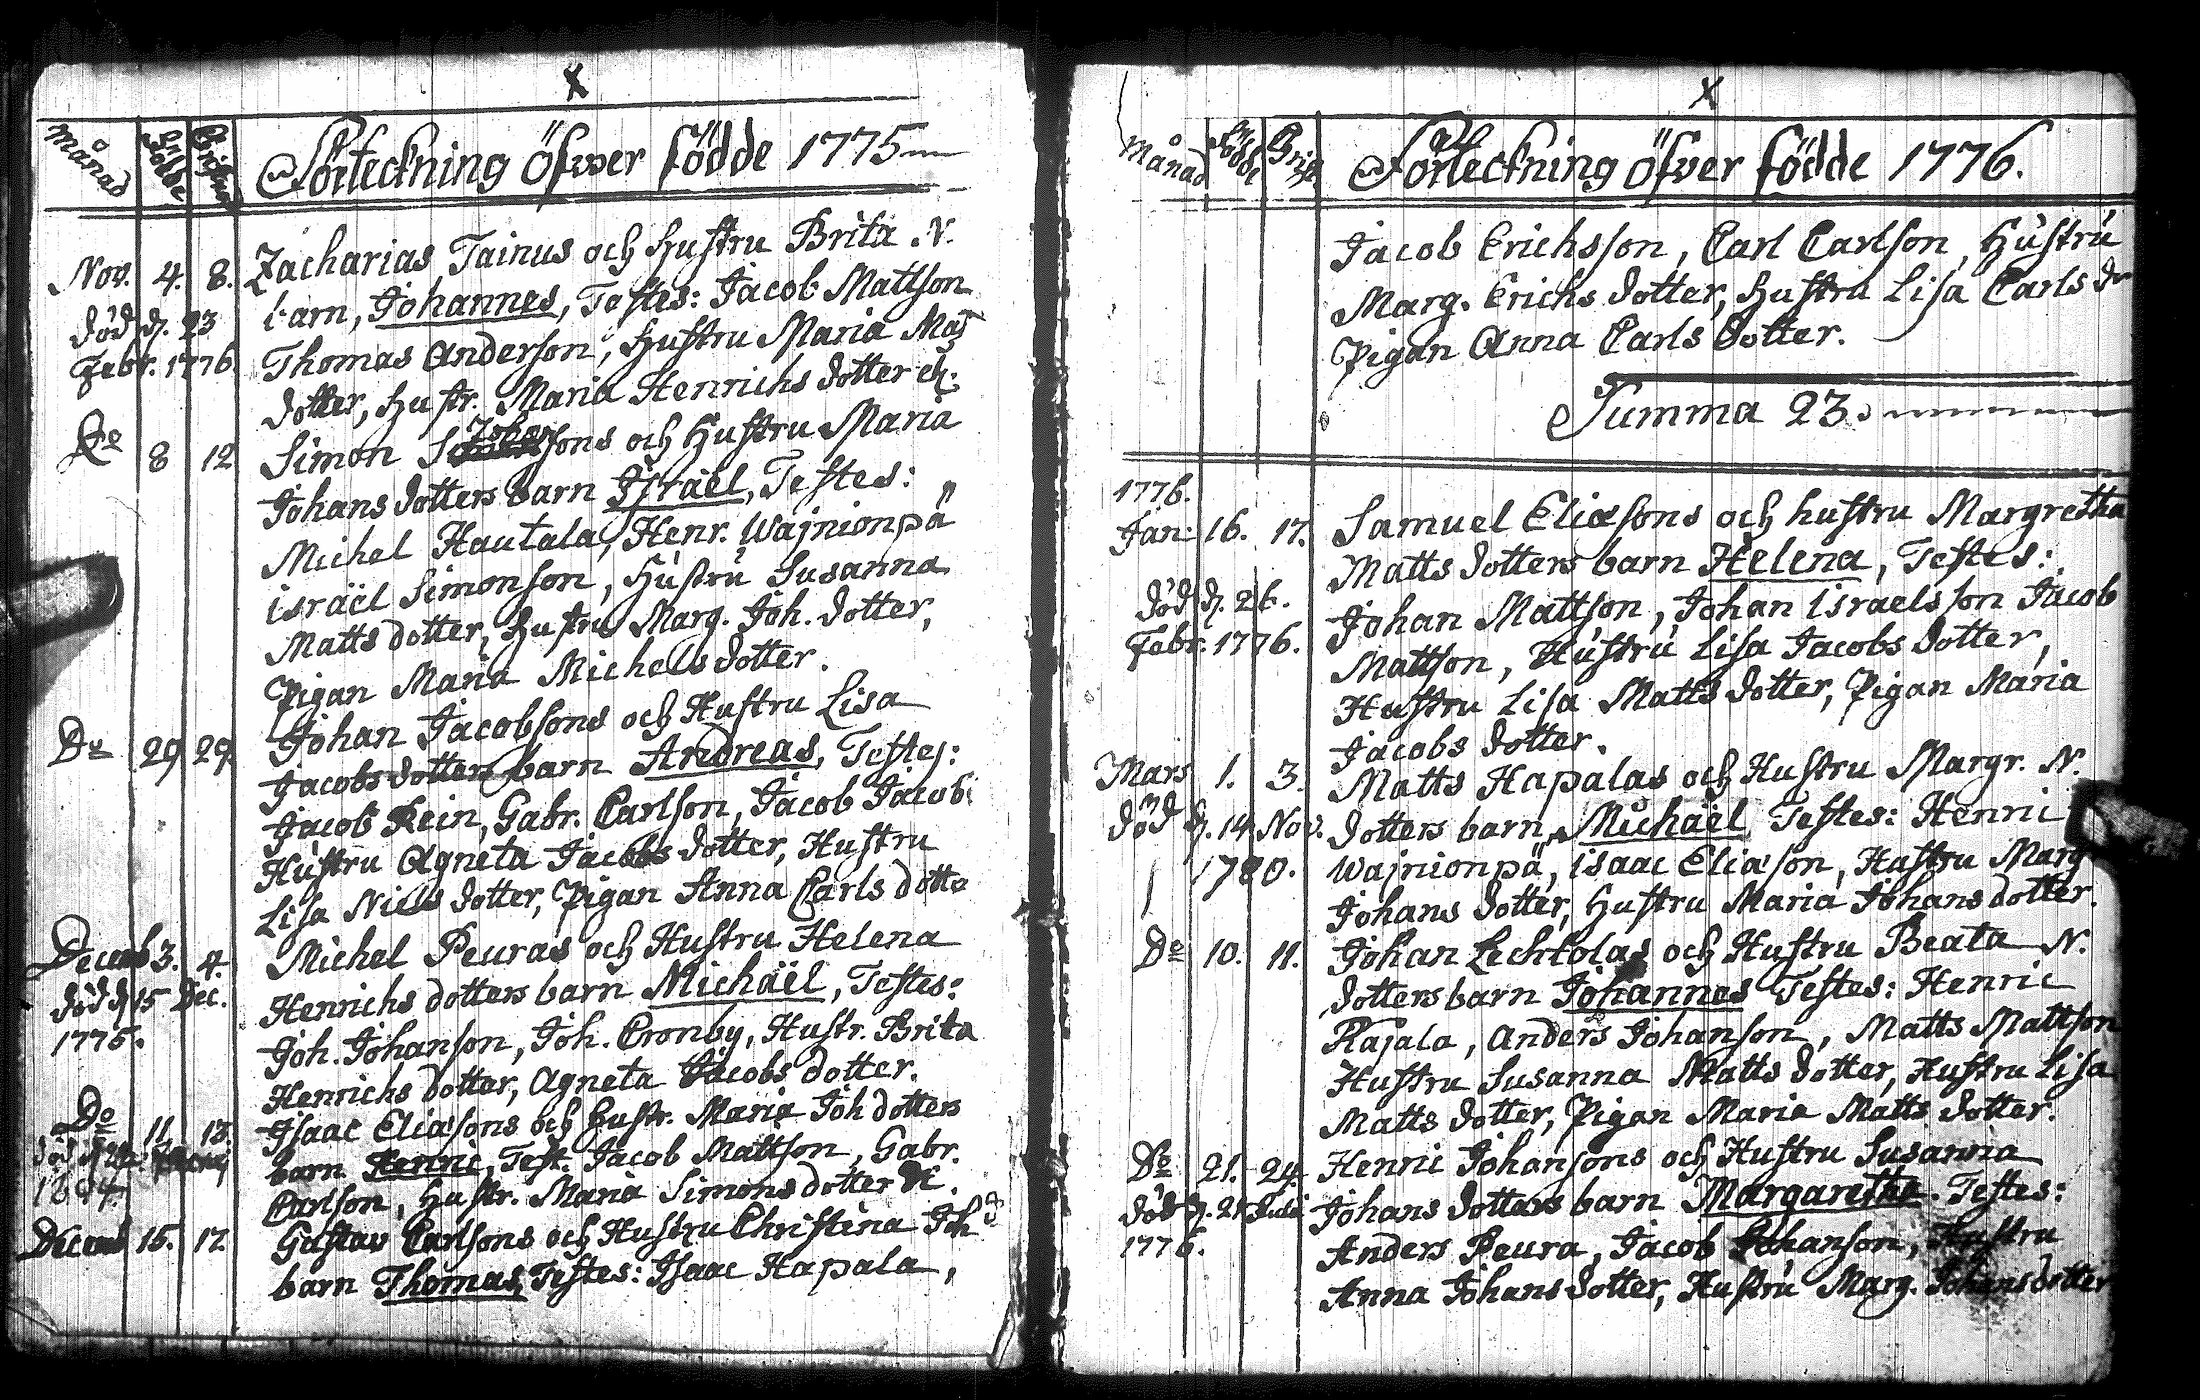 x
Månad Födde Christn. Förteckning öfwer födde 1775
Nov. 4. 8. Zacharias Tainus och Hustru Brita N.
barn, Johannes, Testes: Jacob Mattson
död d. 23 Thomas Anderson, Hustru Maria Mats
Febr. 1776. dotter, Hustr. Maria Henrichs dotter etc.
Do 8 12 Simon Johanssons och Hustru Maria
Johans dotters barn Israël, Testes:
Michel Hautala, Henr. Wajnionpä
Israël Simonson, Hustru Susanna
Matts dotter, Hustru Marg. Joh. dotter,
Pigan Maria Michels dotter.
Do 29 29. Johan Jacobsons och Hustru Lisa
Jacobs dotters barn Andreas, Testes:
Jacob Rein, Gabr. Carlson, Jacob Jacob:
Hustru Agneta Jacobs dotter, Hustru
Lisa Niels dotter, Pigan Anna Carls dotte
Decemb 3. 4. Michel Peuras och Hustru Helena
död d 15 Dec. Henrichs dotters barn Michaël, Testes:
1775. Joh. Johanson, Joh. Cronby, Hustr. Brita
Henrichs dotter, Agneta Jacobs dotter.
Do 11. 13. Isaac Eliæsons och Hustr. Maria Joh dotters
död d barn Henric, Test. Jacob Mattson, Gabr.
Carlson, Hustr. Maria Simons dotter
Decemb 15. 17 Gustav Carlsons och Hustru Christina Joh d
barn Thomas, Testes: Isaac Hapala,
x
Månad Födde Crist Förteckning öfwer födde 1776.
Jacob Erichsson, Carl Carlson, Hustru
Marg. Erichs dotter, Hustru Lisa Carls dr
Pigan Anna Carls dotter.
Summa 23.
1776.
Jan: 16. 17. Samuel Eliæsons och hustru Margretha
Matts dotters barn Helena, Testes:
död d. 26. Johan Mattson, Johan Israelsson Jacob
Febr. 1776. Mattson, Hustru Lisa Jacobs dotter,
Hustru Lisa Matts dotter, Pigan Maria
Jacobs dotter.
Mars 1. 3. Matts Hapalas och Hustru Margr. N.
död d. 14 Nov. dotters barn, Michaël Testes: Henric
1780. Wajnionpä, Isaac Eliæson, Hustru Marg
Johans dotter, Hustru Maria Johans dotter.
Do 10. 11. Johan Lechtolas och Hustru Beata N.
dotters barn Johannes Testes: Henric
Kajala, Anders Johanson, Matts Mattson
Hustru Susanna Matts dotter, Hustru Lisa
Matts dotter, Pigan Maria Matts dotter.
Do 21. 24. Henric Johansons och Hustru Susanna
död d. 21 Juli Johans dotters barn Margaretha. Testes:
1776. Anders Peura, Jacob Johanson, Hustru
Anna Johans dotter, Hustru Marg. Johans dotter